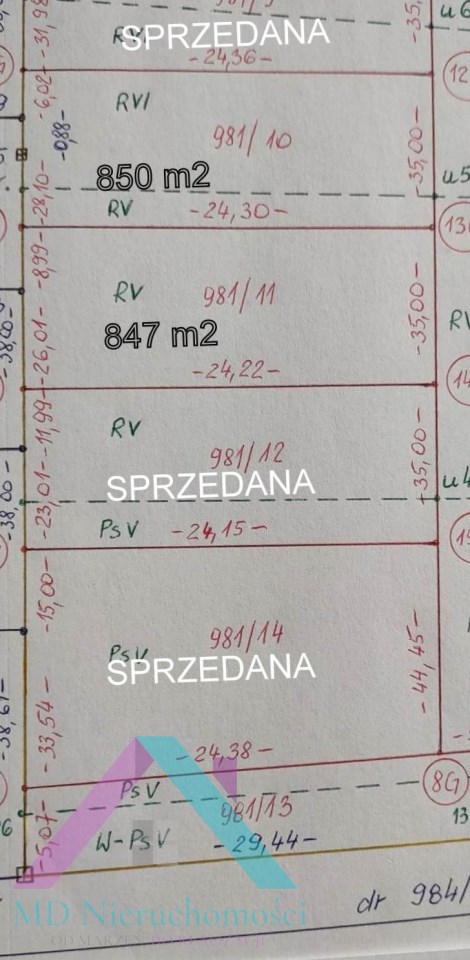 SPRZEDANA
-24,36-
RVI
981/10
850 m2
RV
-24,30-
RV
981/11
847 m2
-24,22-
RV
981/12
SPRZEDANA
PsV
-24,15-
981/14
PsV
SPRZEDANA
-24,38-
PsV
981/13
W-PsV
-29,44-
dr 984/
MD Nieruchomości
-31,98
-6,02-
-0,88-
-28,10-
-8,99-
-26,01-
-11,99-
-23,01-
-15,00-
-33,54-
-5,07-
-38,00-
-38,00-
-38,61-
-35,
-35,00-
-35,00-
-35,00-
-44,45-
u6
12
u5
13
RV
14
u4
15
8G
13